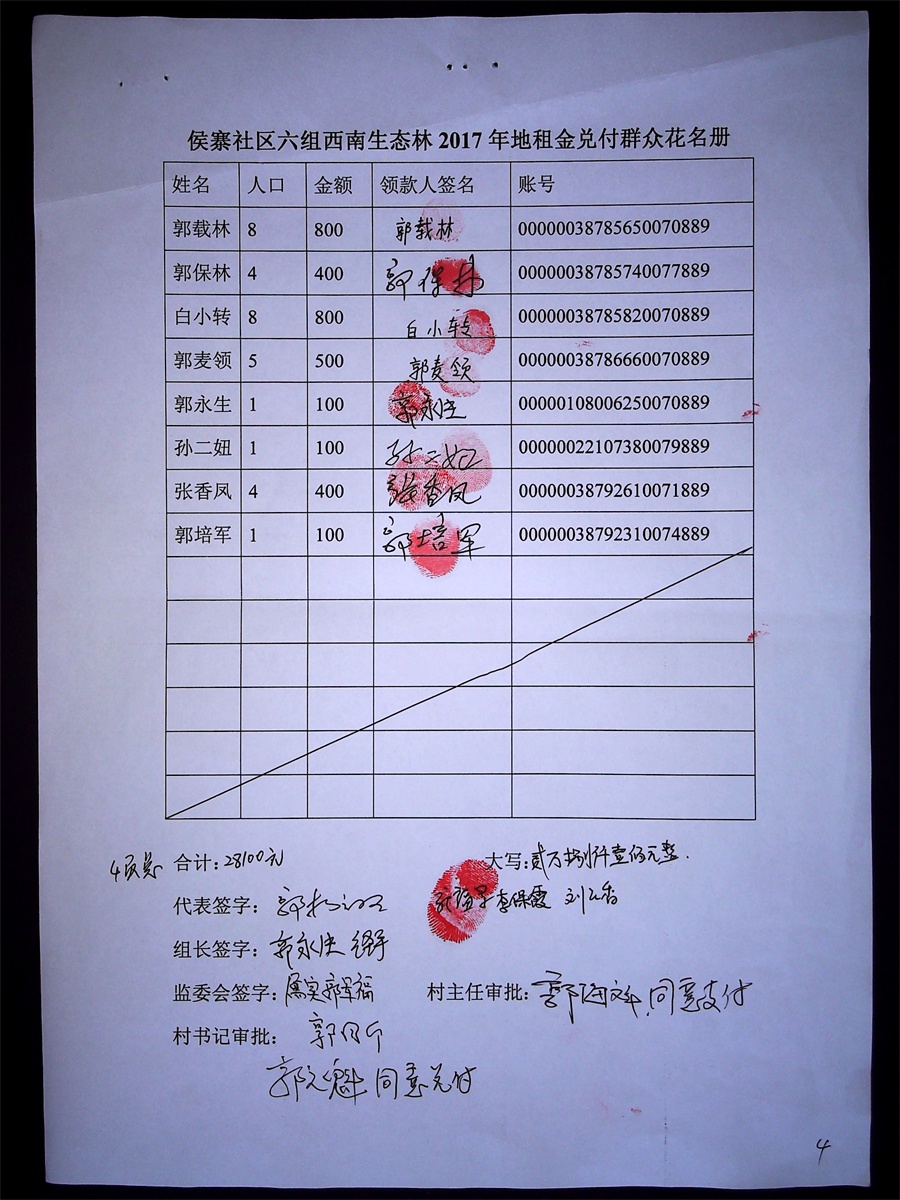 侯寨社区六组西南生态林 2017 年地租金兑付群众花名册
姓名 人口 金额 领款人签名 账号
郭载林 8 800 郭载林 00000038785650070889
郭保林 4 400 郭保林 00000038785740077889
白小转 8 800 白小转 00000038785820070889
郭麦领 5 500 郭麦领 00000038786660070889
郭永生 1 100 郭永生 00000108006250070889
孙二妞 1 100 孙二妞 00000022107380079889
张香凤 4 400 张香凤 00000038792610071889
郭培军 1 100 郭培军 00000038792310074889
4页总 合计:28100元 大写:贰万捌仟壹佰元整.
代表签字: 李保霞
组长签字: 郭永生
监委会签字: 村主任审批: 同意支付
村书记审批:
同意兑付
4